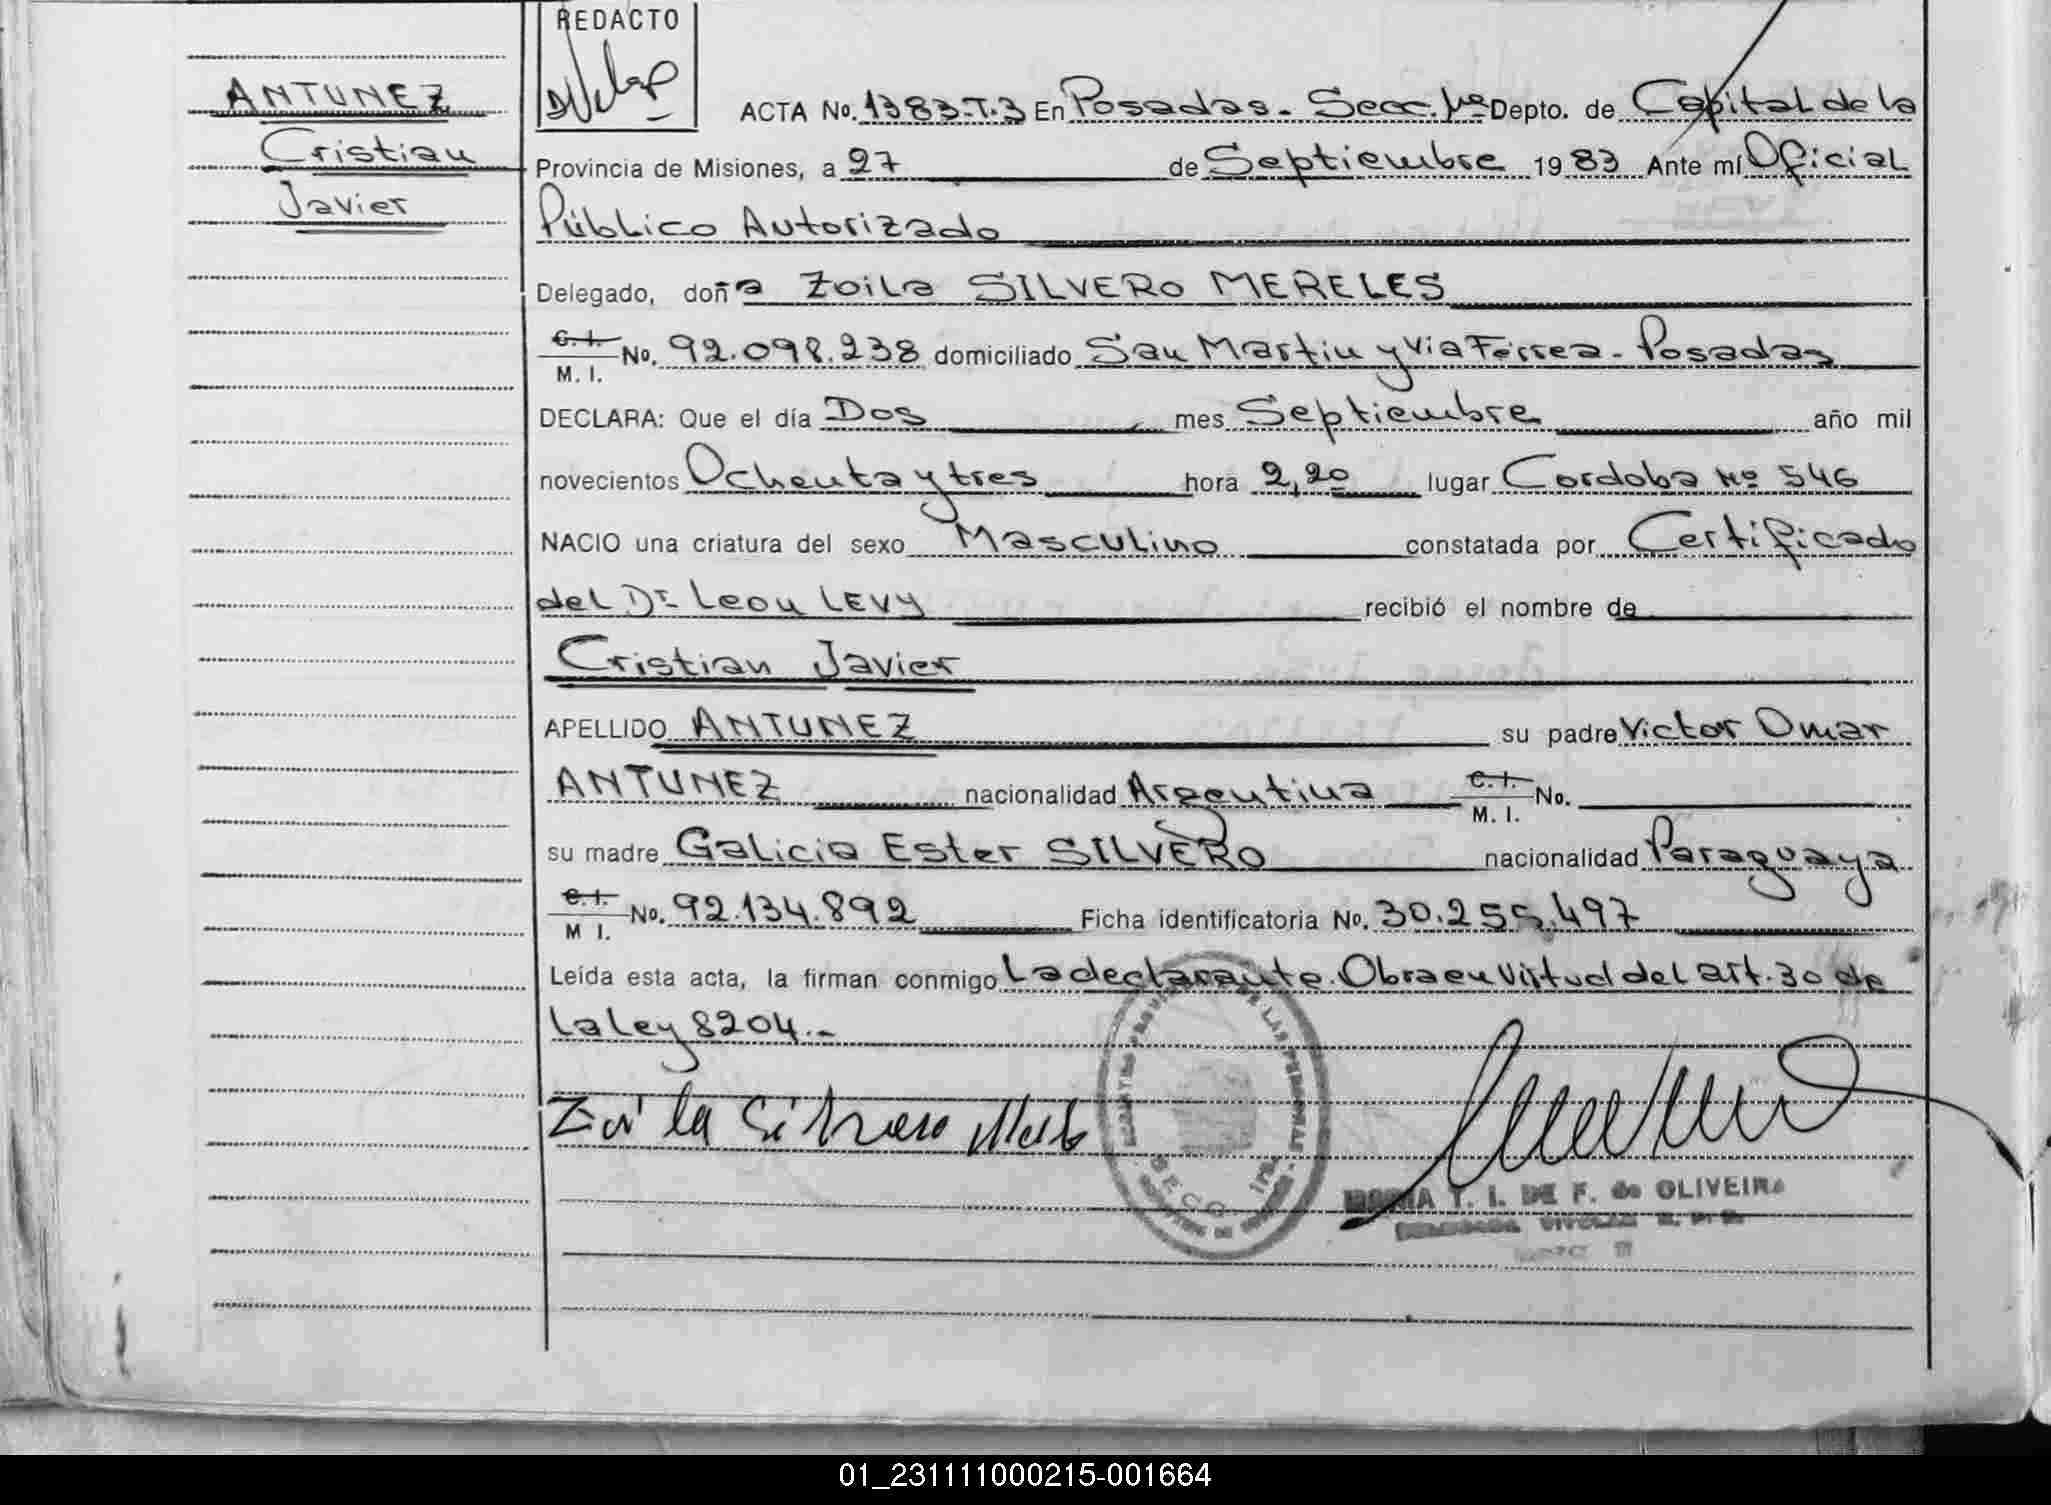 REDACTO
ANTUNEZ
Cristian
Javier
ACTA No. 1383-T.3 En Posadas - Secc. 1ra Depto. de Capital de la
Provincia de Misiones, a 27 de Septiembre 1983 Ante mí Oficial
Público Autorizado
Delegado, doña Zoila SILVERO MERELES
C. I.
M. I. No. 92.098.238 domiciliado San Martin y Via Ferrea - Posadas
DECLARA: Que el día Dos mes Septiembre año mil
novecientos Ochenta y tres hora 2,20 lugar Cordoba Nº 546
NACIO una criatura del sexo Masculino constatada por Certificado
del Dr Leon LEVY recibió el nombre de
Cristian Javier
APELLIDO ANTUNEZ su padre Victor Omar
ANTUNEZ nacionalidad Argentina C. I. M. I. No.
su madre Galicia Ester SILVERO nacionalidad Paraguaya
C. I.
M I. No. 92.134.892 Ficha identificatoria No. 30.255.497
Leída esta acta, la firman conmigo La declarante. Obra en virtud del art. 30 de
la ley 8204.-
Zoila Silvero
MARIA T. I. DE F. de OLIVEIRA
01_231111000215-001664